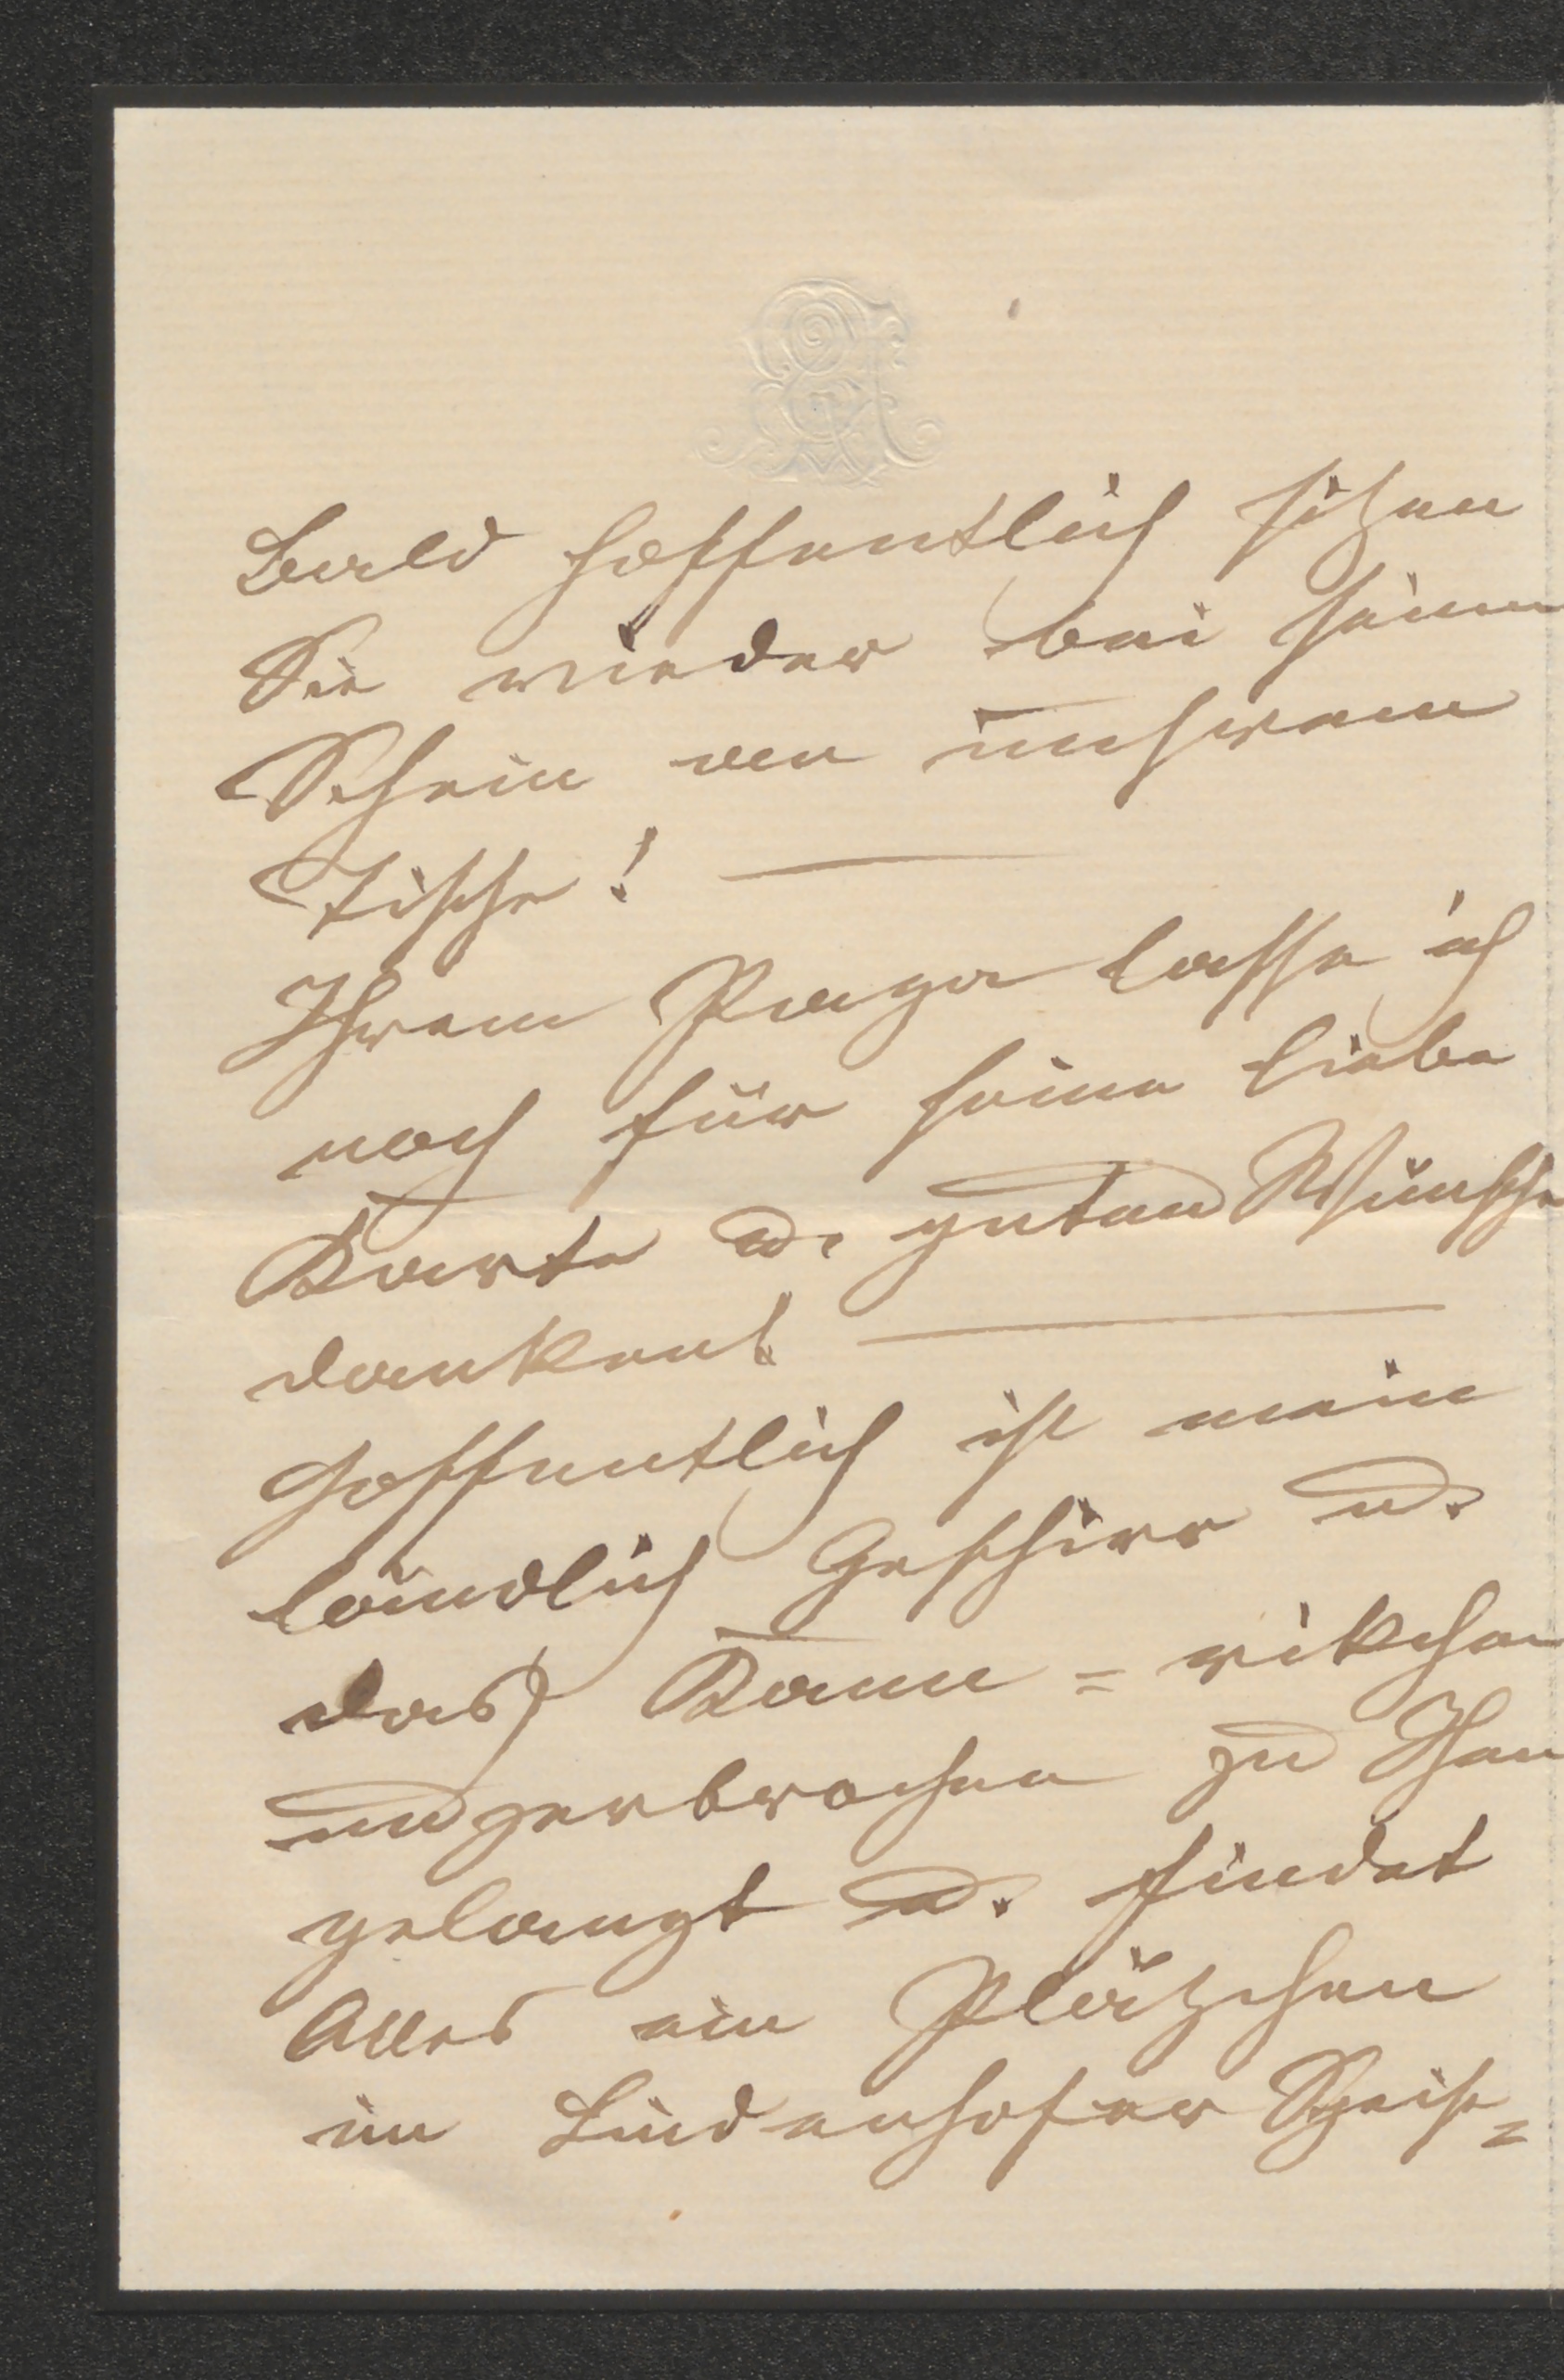 Bald hoffentlich sitzen
Sie wieder bei seinem
Schein an unserem
Tische! —
Ihrem Papa lasse ich
noch für seine liebe
Karte u. guten Wünsche
danken! —
Hoffentlich ist mein
ländlich Geschirr u.
das Kaun=rikchen
unzerbrochen zu Ihnen
gelangt u. findet
Alles ein Plätzchen
im Lindenhofer Speise=